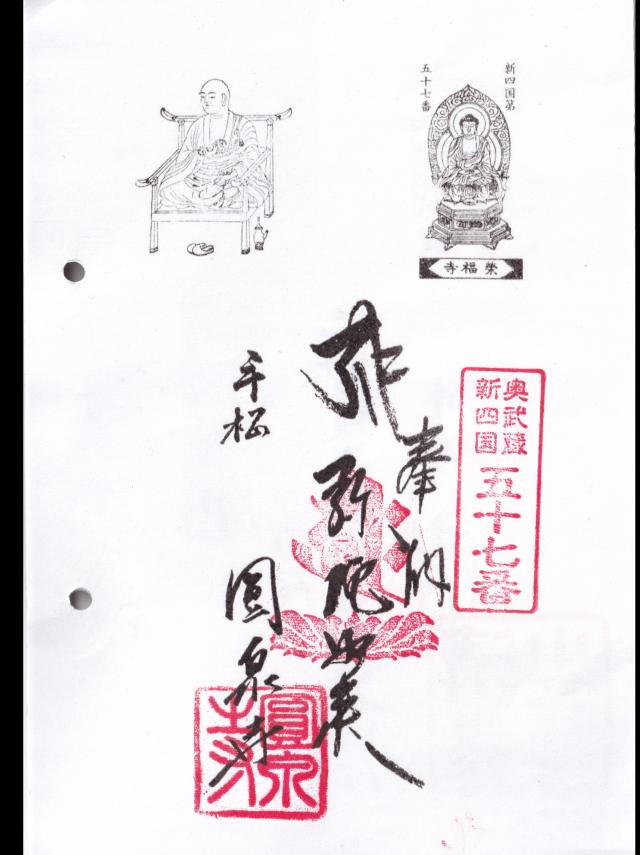 新四国第
五十七番
榮福寺
奥武蔵
新四国
五十七番
奉拝
弥陀如来
平松
圓泉寺
圓泉寺